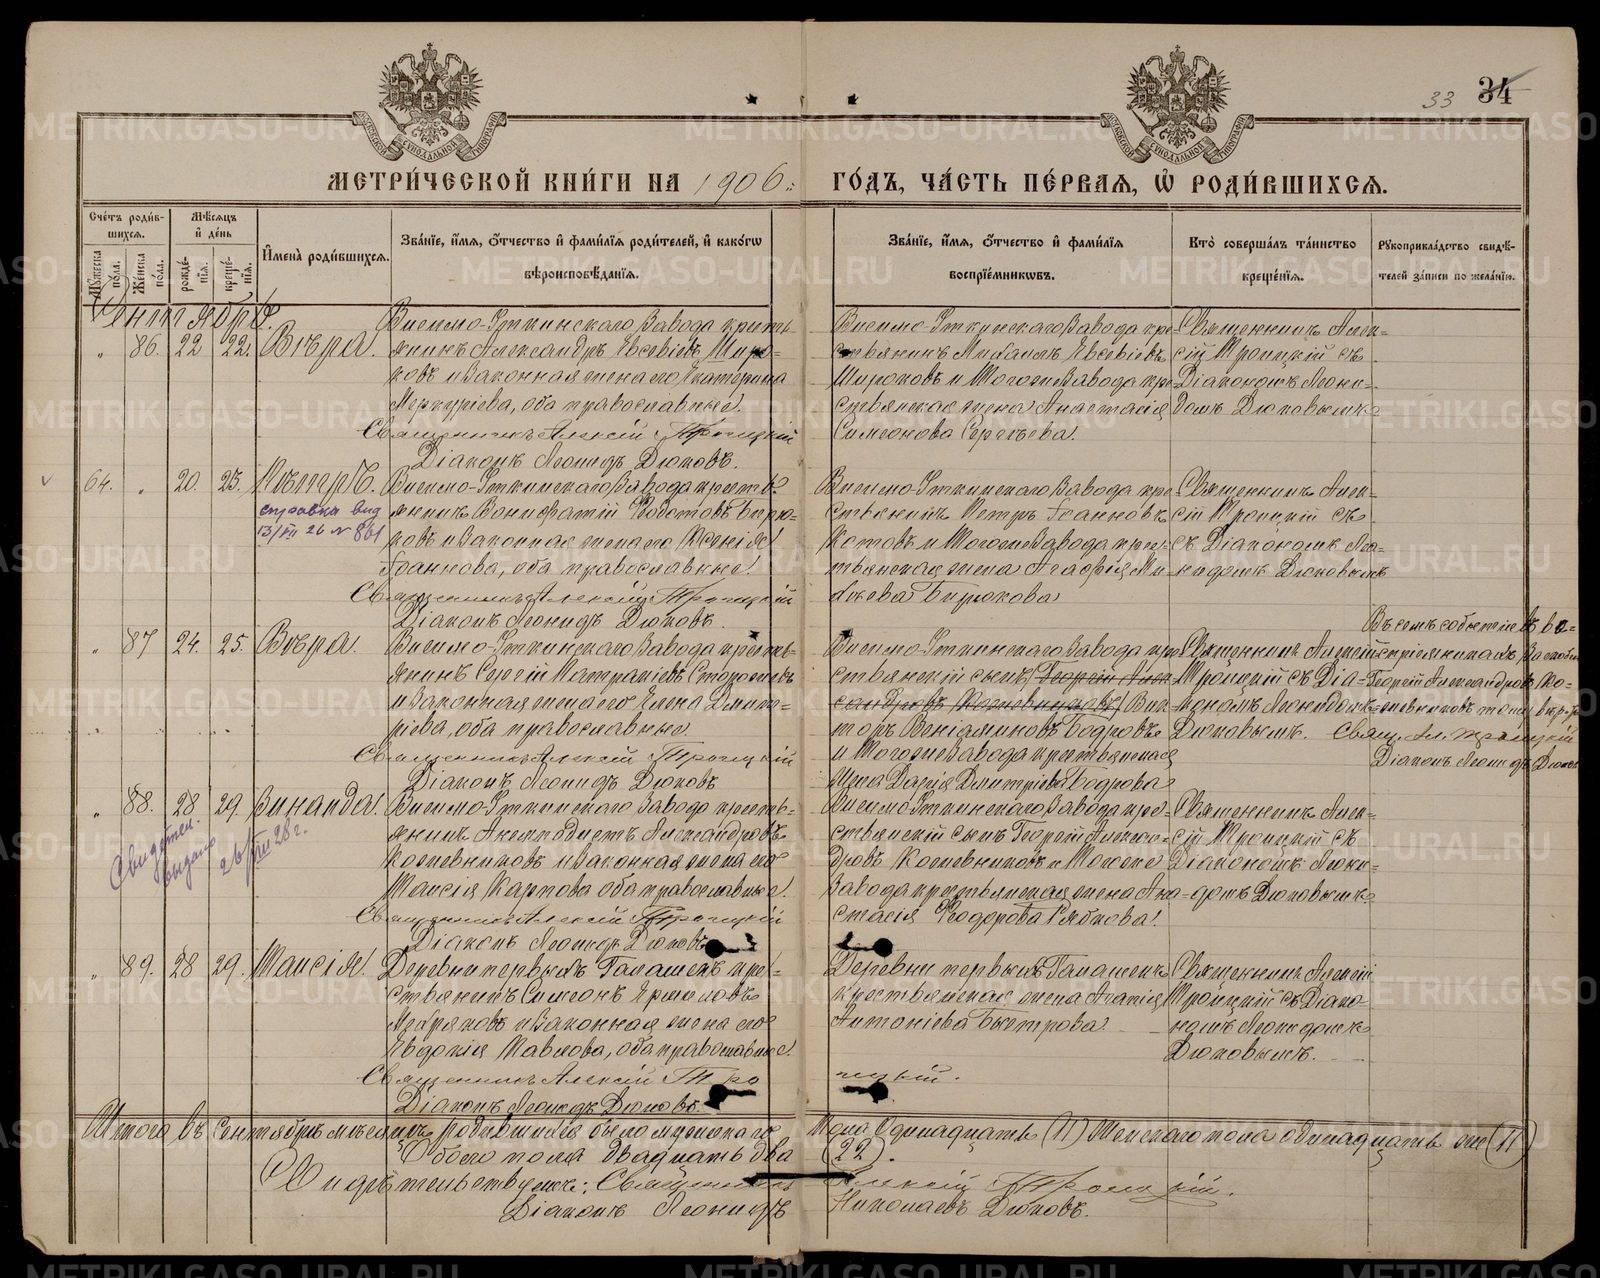 33 34
МЕТРИ́ЧЕСКОЙ КНИ́ГИ НА 1906 ГО́ДЪ, ЧА́СТЬ ПЕ́РВАЯ, Ѡ҆ РОДИ́ВШИХСЯ.
Сче́тъ роди́вшихся.
Мѣ́сяцъ и҆ де́нь
И҆мена̀ роди́вшихся.
Зва́нїе, и҆́мя, ѻ҆́тчество и҆ фами́лїя роди́телей, и҆ како́гѡ вѣроисповѣ́данїя.
Зва́нїе, и҆́мя, ѻ҆́тчество и҆ фами́лїя воспрїе́мникѡвъ.
Кто̀ соверша́лъ та́инство креще́нїя.
Рꙋкоприкла́дство свидѣ́телей за́писи по жела́нїю.
Му́жеска по́ла.
Же́нска по́ла.
рожде́нїя.
креще́нїя.
Сентябрь.
" 86. 22 22. Вѣра.
Висимо-Уткинскаго Завода кресть-
янинъ Александръ Евсевіевъ Широ-
ковъ и законная жена его Екатерина
Меркуріева, оба православные.
Священникъ Алексій Троицкій
Діаконъ Леонидъ Дюковъ.
Висимо-Уткинскаго Завода кре-
стьянинъ Михаилъ Евсевіевъ
Широковъ и тогоже Завода кре-
стьянская жена Анастасія
Симеонова Сергѣева.
Священникъ Алек-
сій Троицкій съ
Діакономъ Леони-
домъ Дюковымъ
64. " 20. 23. Петръ.
справка выд
13/VII 26 № 861
Висимо-Уткинскаго Завода кресть-
янинъ Вонифатій Бирю-
ковъ и законная жена его Ксенія
Іоаннова, оба православные.
Священникъ Алексій Троицкій
Діаконъ Леонидъ Дюковъ.
Висимо-Уткинскаго Завода кре-
стьянинъ Петръ Іоанновъ
Котовъ и тогоже Завода крес-
тьянская жена Агафія
Бирюкова
Священникъ Алек-
сій Троицкій съ
съ Діакономъ Лео-
нидомъ Дюковымъ
" 87 24. 25. Вѣра.
Висимо-Уткинскаго Завода кресть-
янинъ Сергій Патракіевъ
и законная жена его Елена Димит-
ріева, оба православные
Священникъ Алексій Троицкій
Діаконъ Леонидъ Дюковъ
Висимо-Уткинскаго Завода кре-
стьянскій сынъ Георгій Алек-
сандровъ Кожевниковъ Вик-
торъ Веніаминовъ Бодровъ
и тогоже Завода крестьянская
жена Дарія Димитріева Бодрова
Священникъ Алексій
Троицкій съ Діа-
кономъ Леонидомъ
Дюковымъ.
Въ семъ событіе въ во-
спріемникахъ
Георгій Александровъ Ко-
жевниковъ
Свящ. Ал. Троицкій
Діаконъ Леонидъ Дюков
" 88. 28 29. Зинаида.
Свидѣтел.
выдано
26/VII 28 г.
Висимо-Уткинскаго Завода кресть-
янинъ Александровъ
Кожевниковъ и законная жена его
Таисія Карпова оба православные.
Священникъ Алексій Троицкій
Діаконъ Леонидъ Дюковъ
Висимо-Уткинскаго Завода кре-
стьянскій сынъ Георгій Алексан-
дровъ Кожевниковъ и тогоже
Завода крестьянская жена Ана-
стасія Ѳеодорова Рябкова.
Священникъ Алек-
сій Троицкій съ
Діакономъ Леони-
домъ Дюковымъ
" 89. 28 29. Таисія.
Деревни первыхъ Галашекъ кре-
стьянинъ Симеонъ Ермиловъ
и законная жена его
Евдокія Павлова, оба православные.
Священникъ Алексій Троицкій.
Діаконъ Леонидъ Дюковъ.
Деревни первыхъ Галашекъ
крестьянская жена Агапія
Антоніева Быстрова
Священникъ Алексій
Троицкій съ Діако-
номъ Леонидомъ
Дюковымъ.
Итого въ Сентябрѣ мѣсяцѣ родившихся было мужескаго пола Одинадцать (11) Женскаго пола одинадцать же (11)
Обоего пола двадцать два (22).
Свидѣтельствуемъ: Священникъ Алексій Троицкій.
Діаконъ Леонидъ Николаевъ Дюковъ.
METRIKI.GASO-URAL.RU